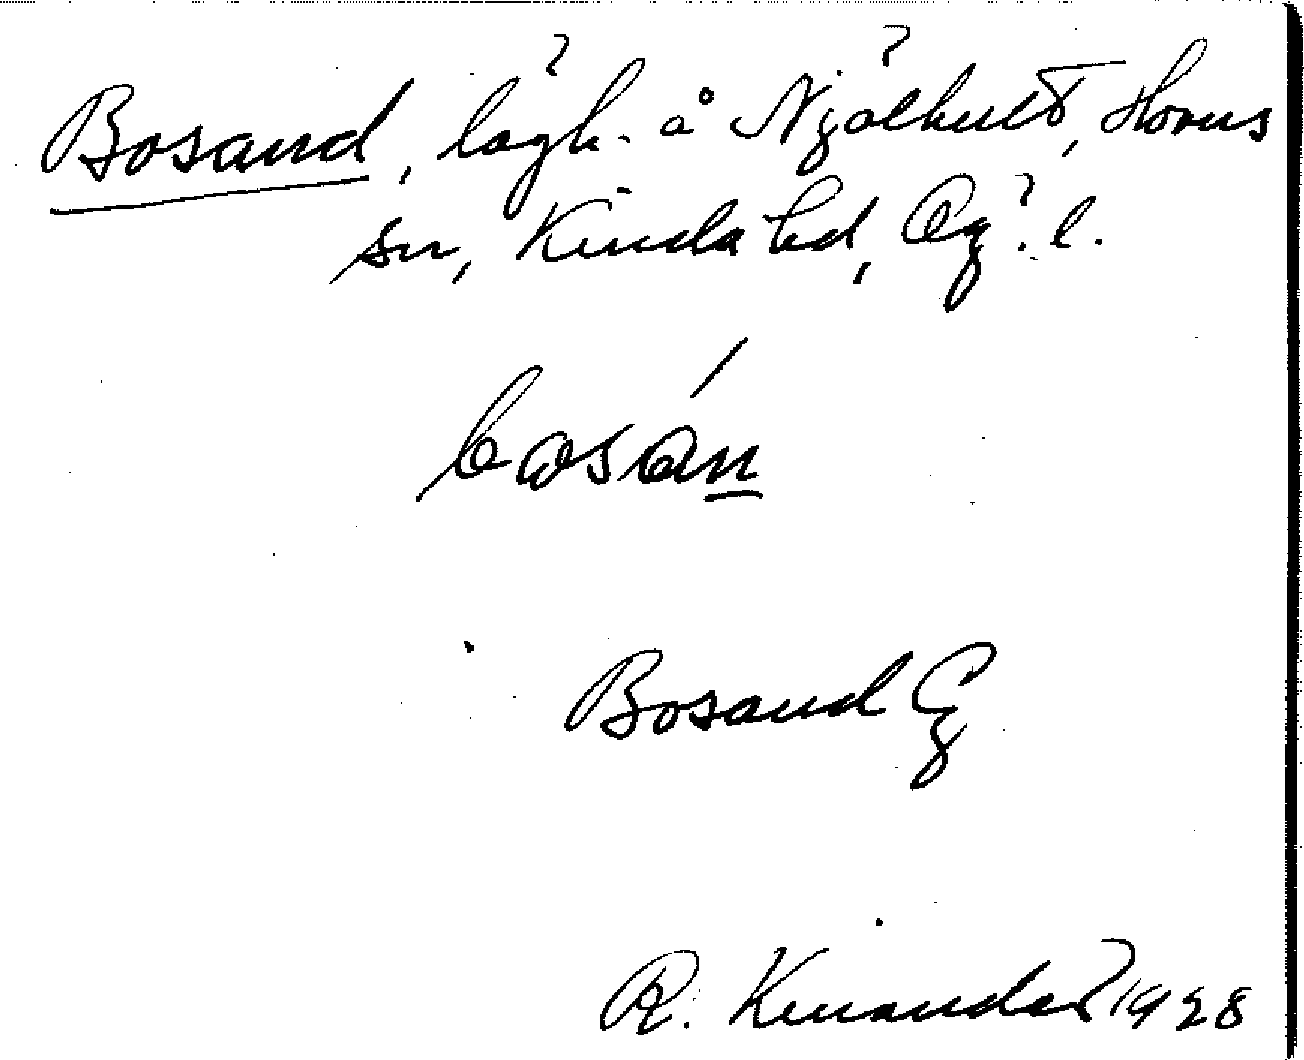 Bosand, lägh. å Njölhult, Horns
sn, Kinda hd, Ög. l.
bosán
Bosand
R. Kinander 1928